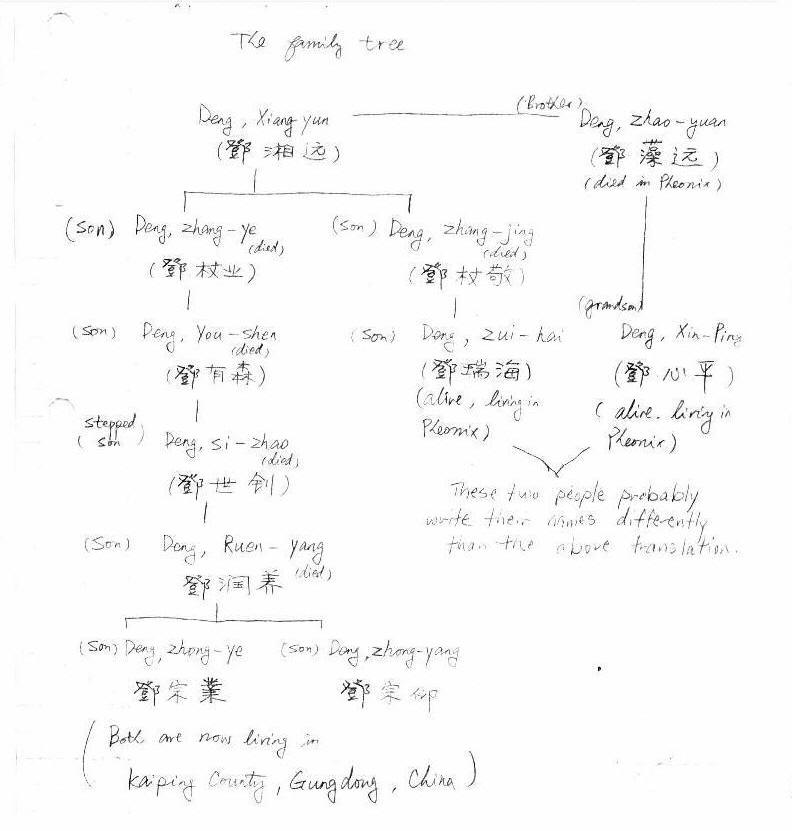 The family tree
(Brother)
Deng, Xiang yun
Deng, Zhao-yuan
(鄧 湘远)
(鄧 藻远)
(died in Pheonix)
(son) Deng, zhang-ye
(died)
(son) Deng, zhang-jing
(died)
(鄧 杖业)
(鄧 杖敬)
(grandson)
(son) Deng, You-shen
(died)
(son) Deng, zui-hai
Deng, Xin-Ping
(鄧有森)
(鄧瑞海)
(鄧 心平)
(alive, living in
Pheonix)
(alive. living in
Pheonix)
(stepped
son)
Deng, si-zhao
(died)
(鄧 世钊)
These two people probably
write their names differently
than the above translation.
(Son) Deng, Ruen-yang
(died)
鄧润养
(son) Deng, zhong-ye
(son) Deng, zhong-yang
鄧宗業
鄧宗仰
(Both are now living in
Kaiping County, Gungdong, China)